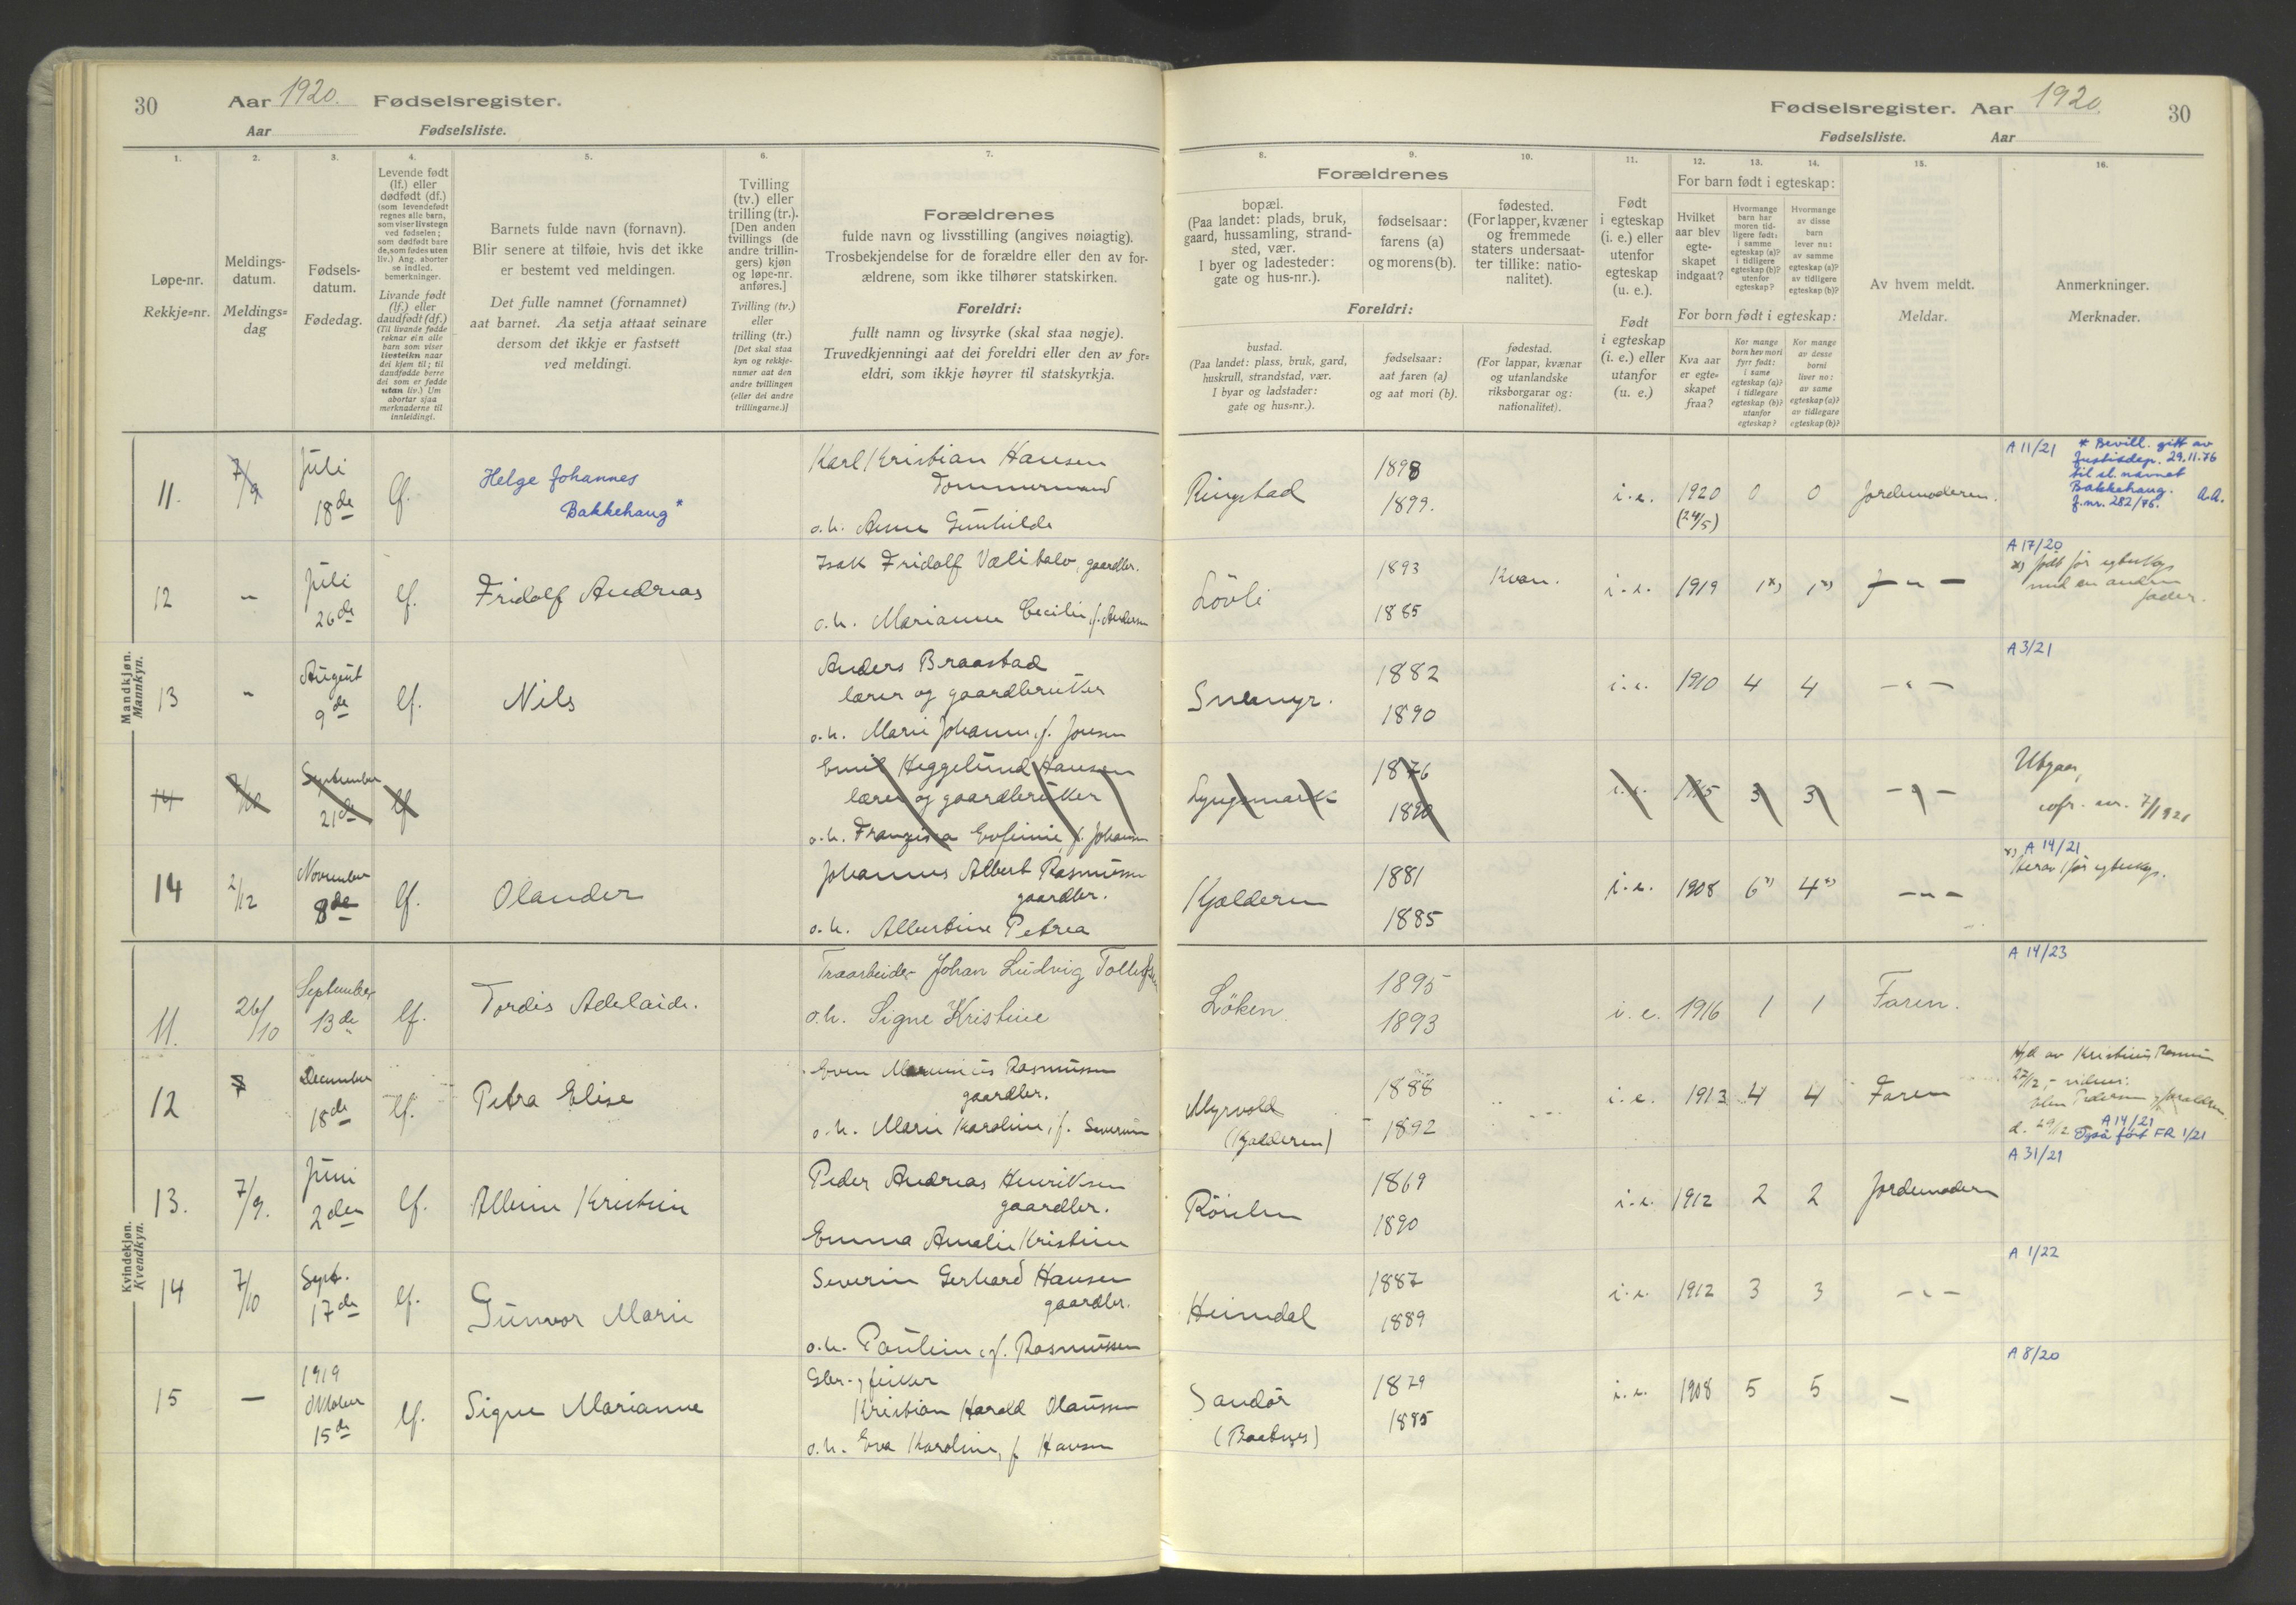 30 Aar 1920. Fødselsregister.
Aar Fødselsliste.
1.
Løpe-nr.
Rekkje=nr.
2.
Meldings-
datum.
Meldings=
dag
3.
Fødsels-
datum.
Fødedag.
4.
Levende født
(lf.) eller
dødfødt (df.)
(som levendefødt
regnes alle barn,
som viser livstegn
ved fødselen;
som dødfødt bare
de, som fødes uten
liv.) Ang. aborter
se indled.
bemerkninger.
Livande født
(lf.) eller
daudfødt (df.)
(Til livande fødde
reknar ein alle
barn som viser
livsteikn naar
dei kjem til; til
daudfødde berre
dei som er fødde
utan liv.) Um
abortar sjaa
merknaderne til
innleidingi.
5.
Barnets fulde navn (fornavn).
Blir senere at tilføie, hvis det ikke
er bestemt ved meldingen.
Det fulle namnet (fornamnet)
aat barnet. Aa setja attaat seinare
dersom det ikkje er fastsett
ved meldingi.
6.
Tvilling
(tv.) eller
trilling (tr.).
[Den anden
tvillings (de
andre trillin-
gers) kjøn
og løpe-nr.
anføres.]
Tvilling (tv.)
eller
trilling (tr.)
[Det skal staa
kyn og rekkje-
numer aat den
andre tvillingen
(eller dei andre
trillingarne.)]
7.
Forældrenes
fulde navn og livsstilling (angives nøiagtig).
Trosbekjendelse for de forældre eller den av for-
ældrene, som ikke tilhører statskirken.
Foreldri:
fullt namn og livsyrke (skal staa nøgje).
Truvedkjenningi aat dei foreldri eller den av for=
eldri, som ikkje høyrer til statskyrkja.
Mandkjøn.
Mannkyn.
11. 7/9 Juli 18de lf. Helge Johannes
Bakkehaug*
Karl Kristian Hansen
Tømmermand
o.h. Anna Gunhilde
12 – Juli 26de lf. Fridolf Andreas
Isak Fridolf Vælitalo, gaardbr.
o.h. Marianne Cecilie, f. Andersen
13 – August 9de lf. Nils
Anders Braastad
lærer og gaardbruker
o.h. Marie Johanne, f. Jensen
14 7/10 September 21de lf
Emil Heggelund Hansen
lærer og gaardbruker
o.h. Franziska Eufemie, f. Johansen
14 2/12 November 8de lf. Olander
Johannes Albert Rasmussen
gaardbr.
o.h. Albertine Petrea
Kvindekjøn.
Kvendkyn.
11. 26/10 September 13de lf. Tordis Adelaide.
Træarbeider Johan Ludvig Tollefsen
o.h. Signe Kristine
12 7 December 18de lf. Petra Elise
Even Rasmussen
gaardbr.
o.h. Marie Karoline, f. Severins
13. 7/9. Juni 2den lf. Kristin
Peder Andreas Henriksen
gaardbr.
Emma Amalie Kristine
14 7/10 Sept. 17de lf. Gunvor Marie
Severin Gerhard Hansen
gaardbr.
o.h. Pauline, f. Rasmussen
15 – 1919 Oktober 15de lf. Signe Marianne
Gbr., fisker
Kristian Harald Olaussen
o.h. Eva Karoline, f Hansen
Fødselsregister. Aar 1920 30
Fødselsliste. Aar
8.
Forældrenes
bopæl.
(Paa landet: plads, bruk,
gaard, hussamling, strand-
sted, vær.
I byer og ladesteder:
gate og hus-nr.).
Foreldri:
bustad.
(Paa landet: plass, bruk, gard,
huskrull, strandstad, vær.
I byar og ladstader:
gate og hus=nr.).
9.
fødselsaar:
farens (a)
og morens (b).
fødselsaar:
aat faren (a)
og aat mori (b).
10.
fødested.
(For lapper, kvæner
og fremmede
staters undersaat-
ter tillike: natio-
nalitet).
fødestad.
(For lappar, kvænar
og utanlandske
riksborgarar og:
nationalitet).
11.
Født
i egteskap
(i. e.) eller
utenfor
egteskap
(u. e.).
Født
i egteskap
(i. e.) eller
utanfor
(u. e.)
12. 13. 14.
For barn født i egteskap:
Hvilket
aar blev
egte-
skapet
indgaat?
Hvormange
barn har
moren tid-
ligere født:
i samme
egteskap (a)?
i tidligere
egteskap (b)?
utenfor
egteskap?
Hvormange
av disse
barn
lever nu:
av samme
egteskap (a)?
av tidligere
egteskap (b)?
For born født i egteskap:
Kva aar
er egte=
skapet
fraa?
Kor mange
born hev mori
fyrr født:
i same
egteskap (a)?
i tidlegare
egteskap (b)?
utanfor
egteskap?
Kor mange
av desse
borni
liver no:
av same
egteskap (a)?
av tidlegare
egteskap (b)?
15.
Av hvem meldt.
Meldar.
16.
Anmerkninger.
Merknader.
Ringstad 1898
1899. i.e. 1920
(24/5) 0 0 Jordemoderen.
A 11/21 * Bevill. gitt av
Justisdep. 29.11.76
til sl. navnet
Bakkehaug.
J.nr. 282/76. A.A.
Lövli 1893
1885 Kvæn. i.e. 1919 1x) 1x) J – " –
A 17/20
x) født før egteskap
med en anden
fader.
Snemyr. 1882
1890 i.e. 1910 4 4 – " –
A 3/21
Lyngsmark 1876
1890 i.e. 1915 3 3 – " –
Utgaar,
cfr. nr. 7/1921
Kjelderen 1881
1885 i.e. 1908 6x) 4x) – " –
x) A 14/21
før egteskap.
Löken 1895
1893 i.e. 1916 1 1 Faren.
A 14/23
Myrvold
(Kjelderen) 1888
1892 i.e. 1913 4 4 Faren
Hjd. av Kristine Rasmus
27/12,
A 14/21
Også ført FR 1/21
1869
1890 i.e. 1912 2 2 Jordemoderen
A 31/21
Heimdal 1887
1889 i.e. 1912 3 3 – " –
A 1/22
Sandör
(Baatnes) 1879
1885 i.e. 1908 5 5 –
A 8/20